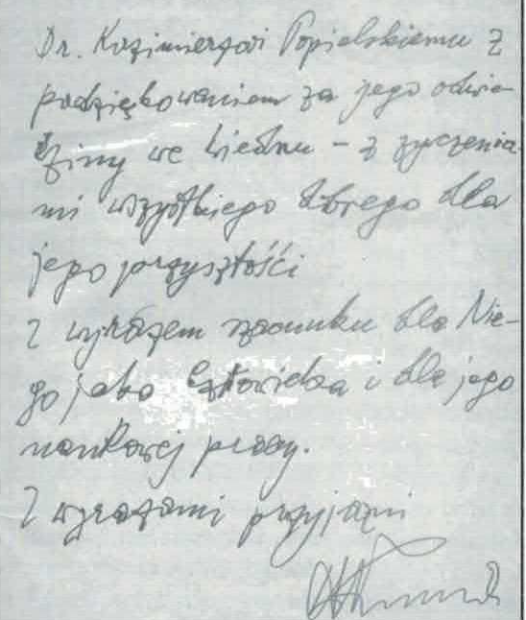 Dr. Kazimierzowi Popielskiemu z
podziękowaniem za jego odwie-
dziny we Wiedniu – z życzenia-
mi wszystkiego dobrego dla
jego przyszłości
z wyrazem szacunku dla Nie-
go jako człowieka i dla jego
naukowej pracy.
Z wyrazami przyjaźni